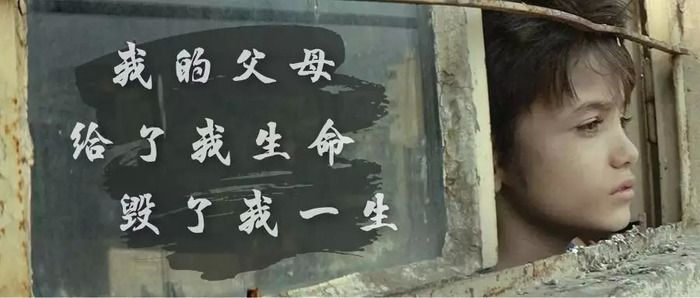 我的父母
给了我生命
毁了我一生